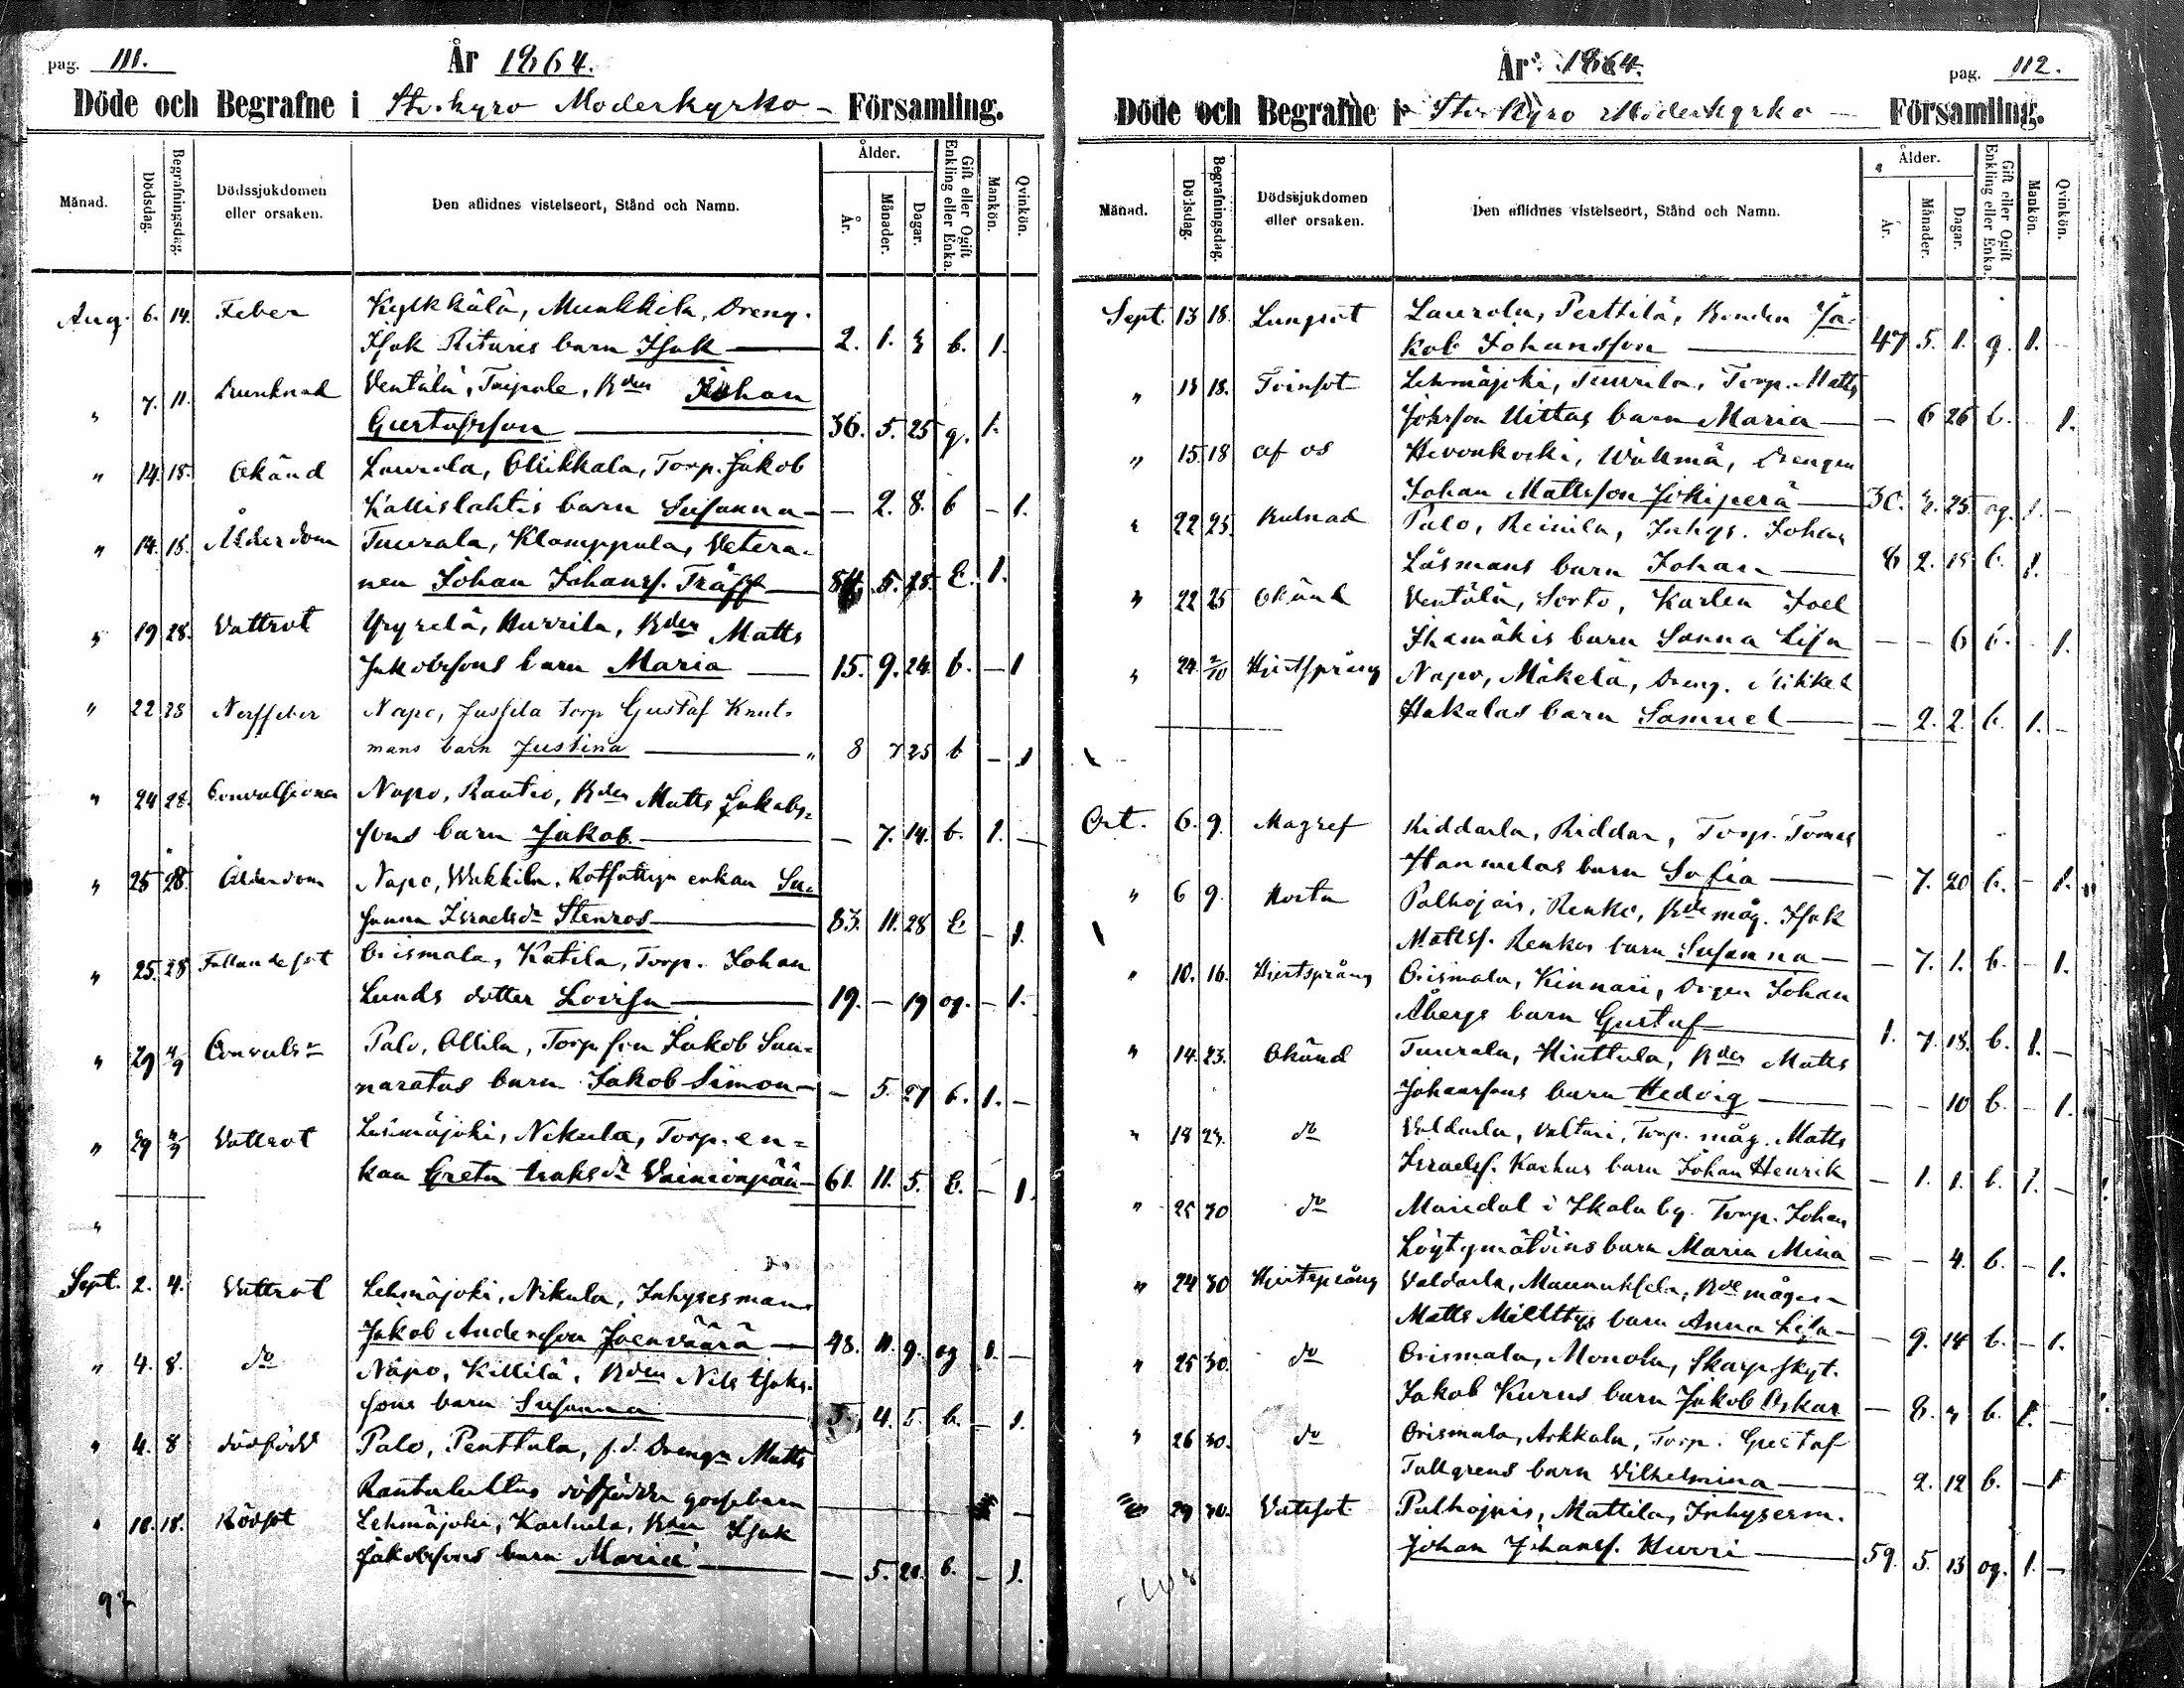 pag. 111.
År 1864.
Döde och Begrafne i Storkyro Moderkyrko- Församling.
Månad. Dödsdag. Begrafningsdag. Dödssjukdomen eller orsaken. Den aflidnes vistelseort, Stånd och Namn. Ålder. År. Månader. Dagar. Gift eller Ogift Enkling eller Enka. Mankön. Qvinkön.
Aug. 6. 14. Feber Kylkkälä, Munkkila, Dreng.
Isak Ritaris barn Isak 2. 1. 3 b. 1.
" 7. 11. Drunknad Ventälä, Taipale, Bden Johan
Gustafsson 36. 5. 25 g. 1.
" 14. 18. Okänd Laurola, Ollikkala, Torp. Jakob
Kallislahtis barn Susanna - 2. 8. b - 1.
" 14. 18. Ålderdom Tuurala, Klamppula, Vetera-
nen Johan Johanss. Träff 84. 5. 25. E. 1.
" 19 28. Vattsot Yryselä, Hurrila, Bden Matts
Jakobssons barn Maria 15. 9. 24. b. - 1
" 22 28 Nerffeber Napo, Jussila torp Gustaf Knut-
mans barn Justina " 8 7 25 b - 1
" 24 28. Convulsioner Napo, Rautio, Bden Matts Jakobs-
sons barn Jakob - 7. 14. b. 1. -
" 25 28. Ålderdom Napo, Wakkila, Rotfattige enkan Su-
sanna Israelsdr Stenros 83. 11. 28 E - 1.
" 25. 28 Fallandesot Orismala, Katila, Torp. Johan
Lunds dotter Lovisa 19. - 19 og. - 1.
" 29 4/9 Convulsr Palo, Ollila, Torp. son Jakob San-
naratas barn Jakob Simon - 5. 27 b. 1. -
" 29 4/9 Vattsot Lehmäjoki, Nikula, Torp. en-
kan Greta Isaksdr Vainionpää 61. 11. 5. E. - 1.
"
Sept. 2. 4. Vattsot Lehmäjoki, Nikula, Inhysesman
Jakob Andersson Joenväärä 48. 11. 9. og 1. -
" 4. 8. do Napo, Killilä, Bden Nils Isaks-
sons barn Susanna 5. 4. 5. b. - 1.
" 4. 8 dödfödd Palo, Penttula, f.d. Drengn Matts
Rantalahtas dödfödda gossebarn
" 10. 18. Rödsot Lehmäjoki, Karhula, Bden Isak
Jakobssons barn Maria - 5. 21. b. - 1.
97
År 1864.
pag. 112.
Döde och Begrafne i Storkyro Moderkyrko Församling.
Månad. Dödsdag. Begrafningsdag. Dödssjukdomen eller orsaken. Den aflidnes vistelseort, Stånd och Namn. Ålder. År. Månader. Dagar. Gift eller Ogift Enkling eller Enka. Mankön. Qvinkön.
Sept. 13 18. Lungsot Laurola, Perttilä, Bonden Ja-
kob Johansson 47 5. 1. g. 1. -
" 13 18. Tvinsot Lehmäjoki, Tuurila, Torp. Matts
Johsson Uittas barn Maria - 6 26 b. 1.
" 15. 18 af os Hevonkoski, Drengen
Johan Mattsson Jokiperä 30. 3. 25 og. 1. -
" 22 25. Bulnad Palo, Reinila, Inhys. Johan
Låsmans barn Johan 8 2. 15 b. 1.
" 22 25 Okänd Ventälä, Sorto, Karlen Joel
Ihamäkis barn Sanna Lisa - - 6 b. 1.
" 24 2/10 Hjertsprång Napo, Mäkelä, Dreng. Mikkel
Hakalas barn Samuel - 2. 2. b. 1. -
Oct. 6. 9. Magref Riddarla, Riddar, Torp. Tomas
Hannulas barn Sofia - 7. 20 b. - 1.
" 6 9. Hosta Palhojais, Renko, Bde måg. Isak
Mattss. Renkos barn Susanna - 7. 1. b. - 1.
" 10. 16. Hjertsprång Orismala, Kinnari, Drgen Johan
Åbergs barn Gustaf 1. 7. 18. b. 1. -
" 14. 23. Okänd Tuurala, Hinttula, Bden Matts
Johanssons barn Hedvig - - 10 b. - 1.
" 18 23. do Valdarla, Valtari, Torp. måg. Matts
Israelss. Karhus barn Johan Henrik - 1. 1. b. 1. -
" 25 30 do Mariedal i Ikola by. Torp. Johan
Löytymätöins barn Maria Mina - - 4. b. - 1.
" 24 30 Hjertsprång Valdarla, Maunuksela, Bde mågen
Matts Mälttys barn Anna Lisa - 9. 14 b. - 1.
" 25 30. do Orismala, Monola, Skarpskyt.
Jakob Kurus barn Jakob Oskar - 8. 3 b. 1. -
" 26 30. do Orismala, Askkala, Torp. Gustaf
Tallgrens barn Vilhelmina - 2. 12 b. - 1
" 29 30. Vattsot Palhojais, Mattila, Inhysesm.
Johan Johanss. Hurri 59. 5. 13 og. 1. -
108